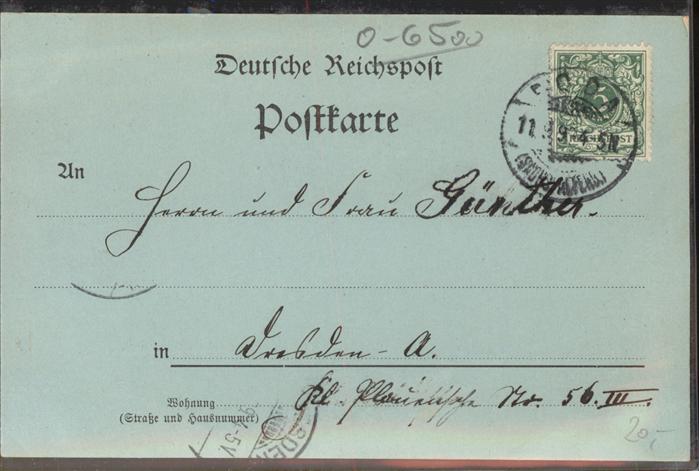 0-6500
Deutsche Reichspost
Postkarte
An
Herrn und Frau Günther.
in Dresden-A.
Wohnung
(Straße und Hausnummer)
Kl. Plauensche Str. 56. III.
20,-